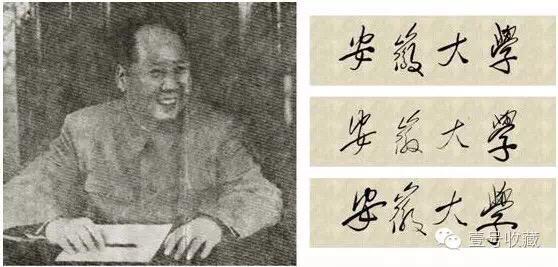 安徽大學
安徽大學
安徽大學
壹号收藏